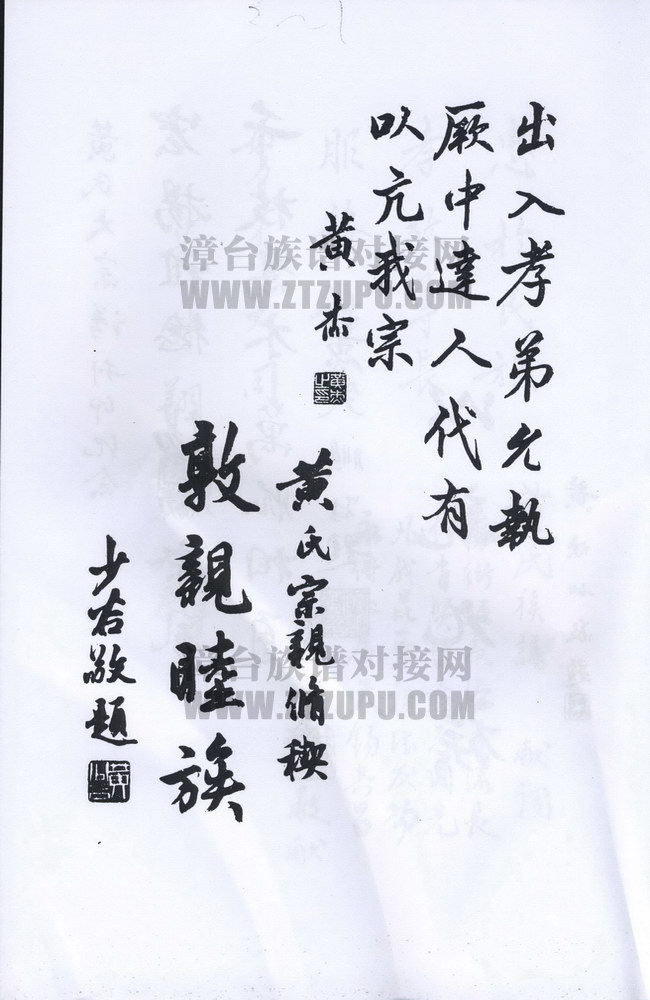 出入孝弟允執
厥中達人代有
以亢我宗
黄杰
黄杰之印
黄氏宗親脩禊
敦親睦族
少谷敬題
漳台族谱对接网
WWW.ZTZUPU.COM
漳台族谱对接网
WWW.ZTZUPU.COM